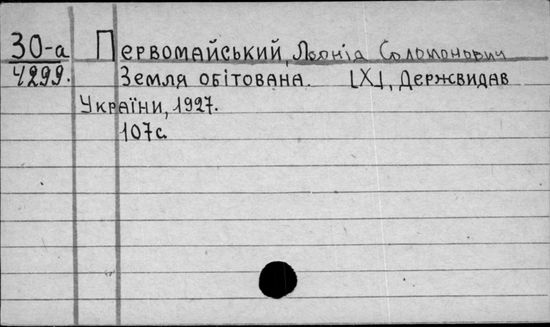 30-а Первомайський, Леонід Соломонович
4299. Земля обітована. [Х], Держвидав
України, 1927.
107с.